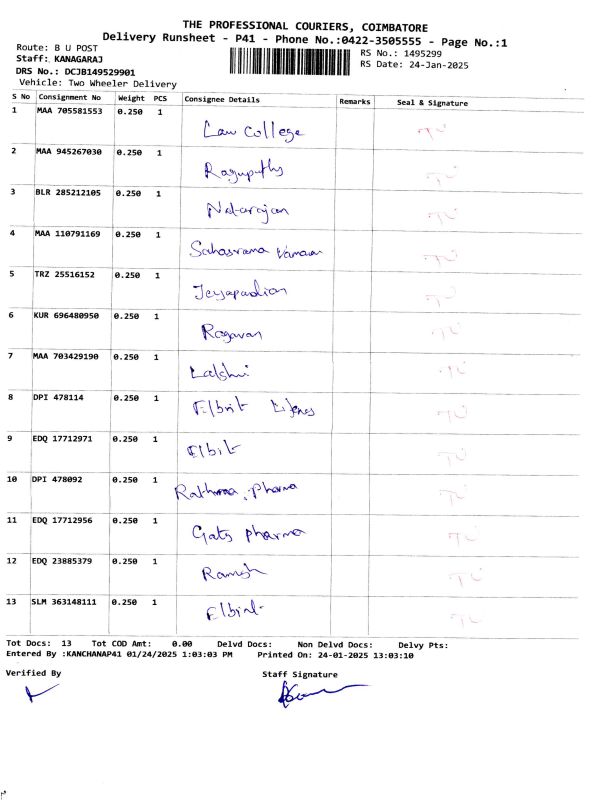 THE PROFESSIONAL COURIERS, COIMBATORE
Delivery Runsheet - P41 - Phone No.:0422-3505555 - Page No.:1
Route: B U POST
RS No.: 1495299
Staff: KANAGARAJ
RS Date: 24-Jan-2025
DRS No.: DCJB149529901
Vehicle: Two Wheeler Delivery
S No Consignment No Weight PCS Consignee Details Remarks Seal & Signature
1 MAA 705581553 0.250 1
Law College
2 MAA 945267030 0.250 1
Ragupathy
3 BLR 285212105 0.250 1
Natarajan
4 MAA 110791169 0.250 1
Sahasrama
5 TRZ 25516152 0.250 1
Jeyapadian
6 KUR 696480950 0.250 1
Ragavan
7 MAA 703429190 0.250 1
Lakshmi
8 DPI 478114 0.250 1
Elbrit
9 EDQ 17712971 0.250 1
Elbit
10 DPI 478092 0.250 1
Pharma
11 EDQ 17712956 0.250 1
Gats pharma
12 EDQ 23885379 0.250 1
Ramesh
13 SLM 363148111 0.250 1
Elbrit
Tot Docs: 13 Tot COD Amt: 0.00 Delvd Docs: Non Delvd Docs: Delvy Pts:
Entered By :KANCHANAP41 01/24/2025 1:03:03 PM Printed On: 24-01-2025 13:03:10
Verified By Staff Signature